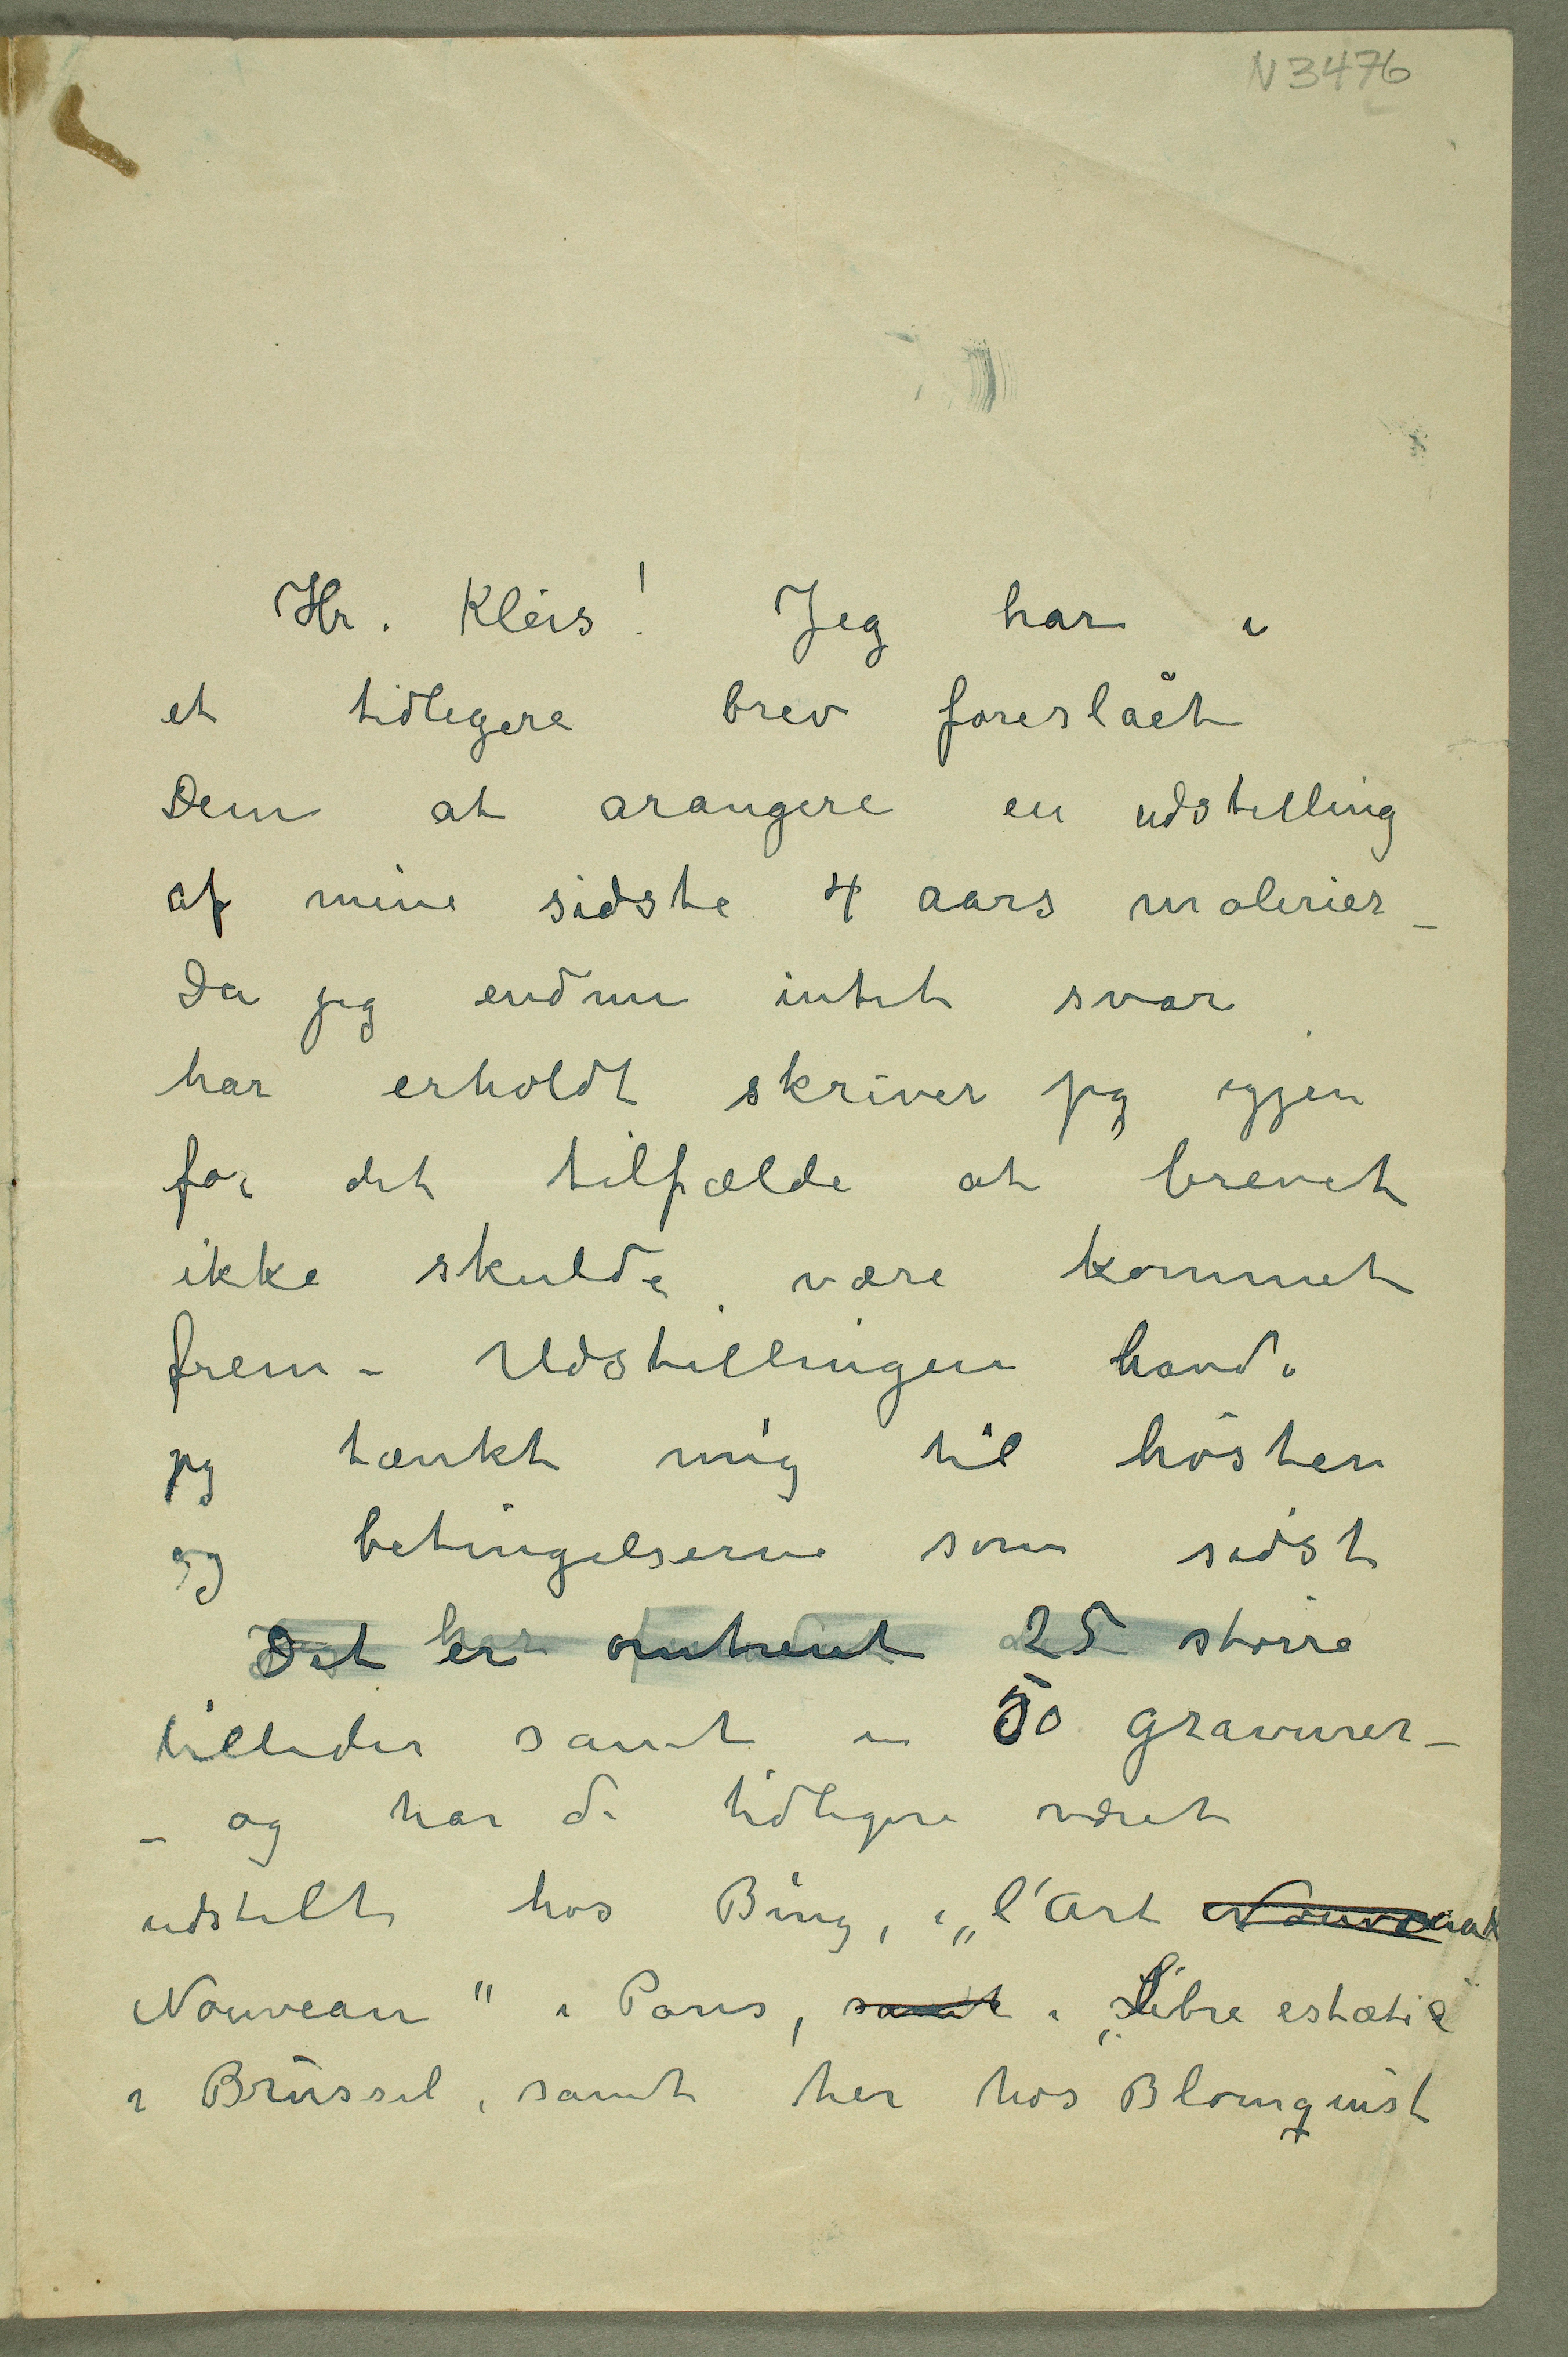 N 3476
Hr. Kleis! Jeg har i
et tidligere brev foreslåt
Dem at arangere en udstilling
af mine sidste 4 aars malerier –
Da jeg endnu intet svar
har erholdt skriver jeg igjen
for det tilfælde at brevet
ikke skulde være kommet
frem – Udstillingen havde
jeg tænkt mig til hösten
og betingelserne som sidst
Det er omtrent 25 större
billeder samt en 50 gravurer –
– og har de tidligere været
udstilt hos Bing, i „l'Art
Nouveau" i Paris, samt i „Libre estætic
i Brüssel, samt her hos Blomquist